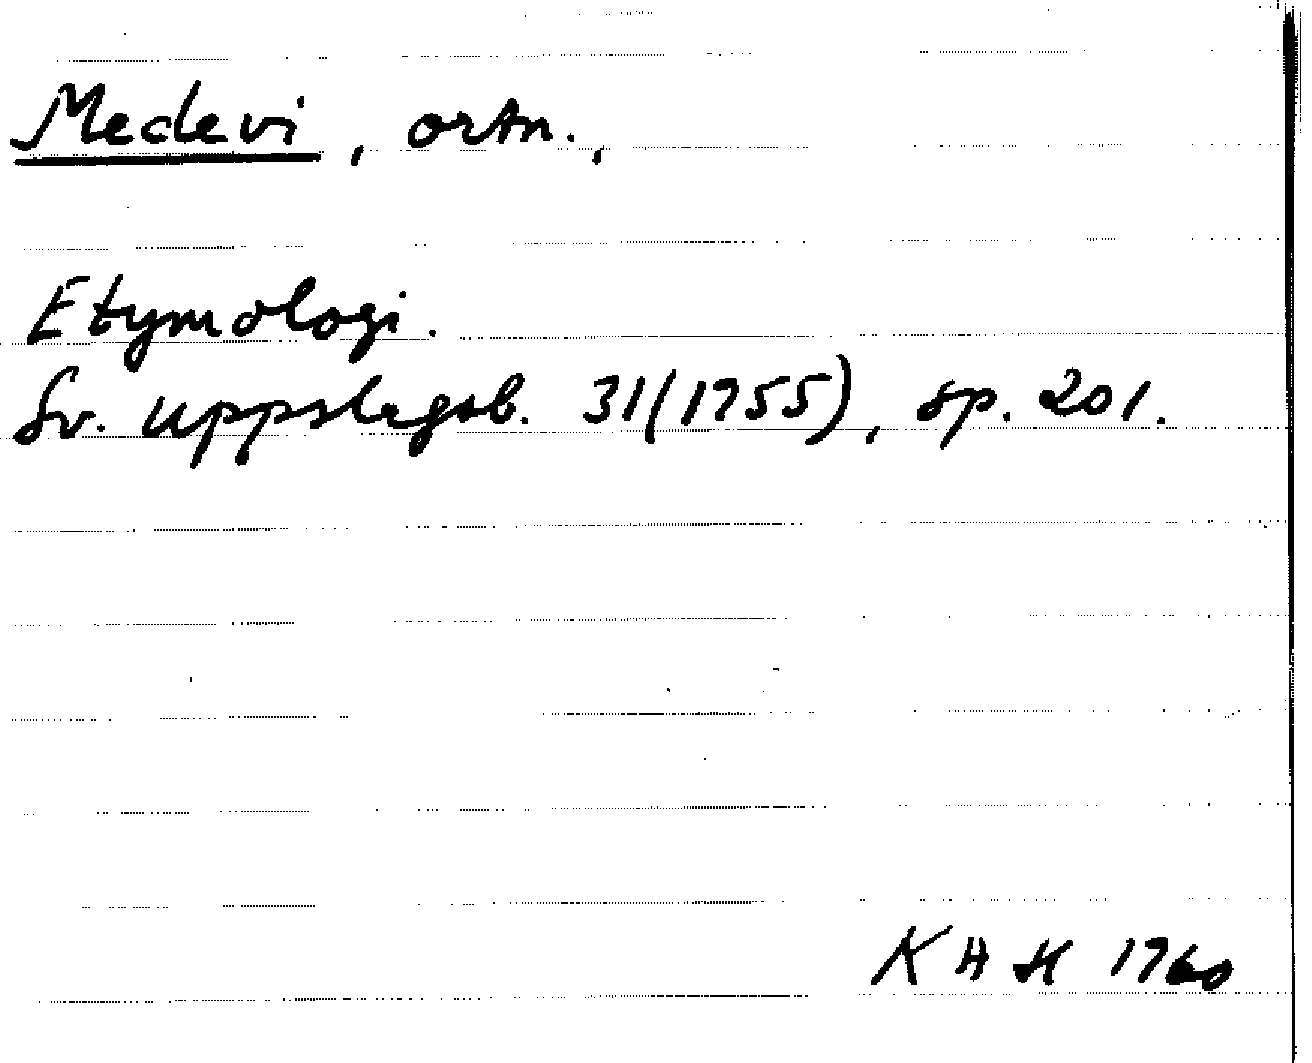 Medevi, ortn.,
Etymologi.
Sv. uppslagsb. 31(1955), sp. 201.
KHH 1960